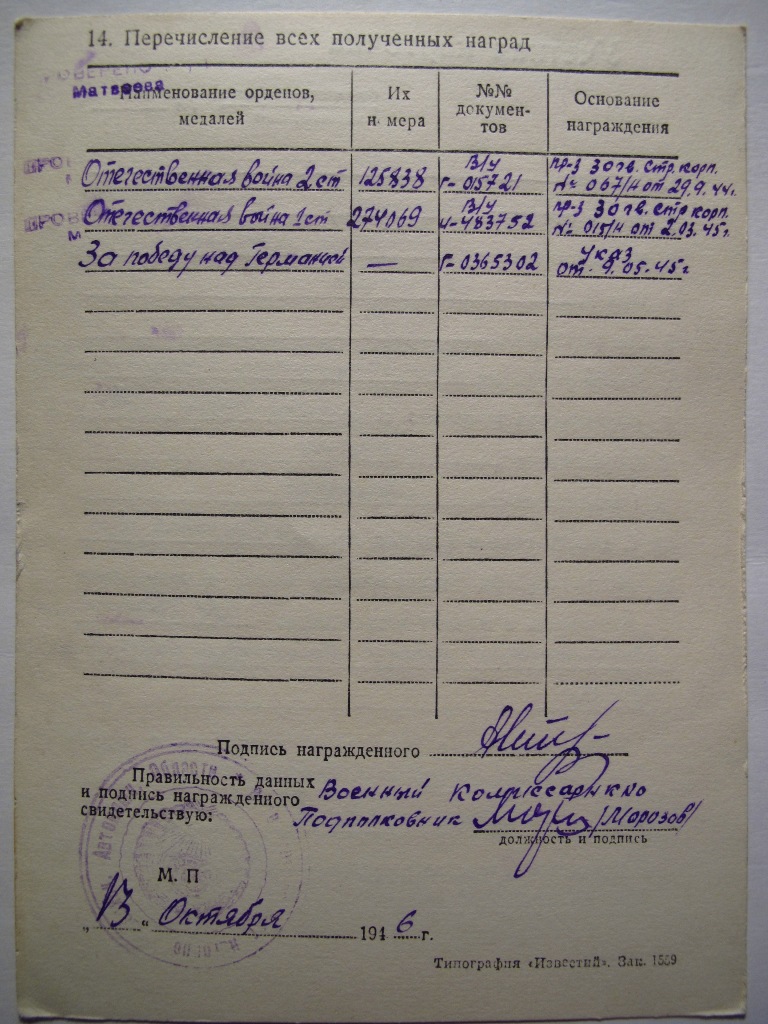 14. Перечисление всех полученных наград
Матвеева
Наименование орденов, медалей
Их номера
№№ документов
Основание награждения
Отечественная война 2 ст 125838 В/у Г-015721 пр-з 30 гв. Стр. корп. № 067/н от 29.9.44 г.
Отечественная война 1 ст 274069 В/у И-483752 пр-з 30 гв. Стр. корп. № 015/н от 2.03.45 г.
За победу над Германией — Г-0365302 Указ от 9.05.45 г
Подпись награжденного
Правильность данных
и подпись награжденного
свидетельствую:
Военный комиссар
Подполковник /Морозов/
должность и подпись
М. П
„13“ Октября 1946 г.
Типография «Известий». Зак. 1559